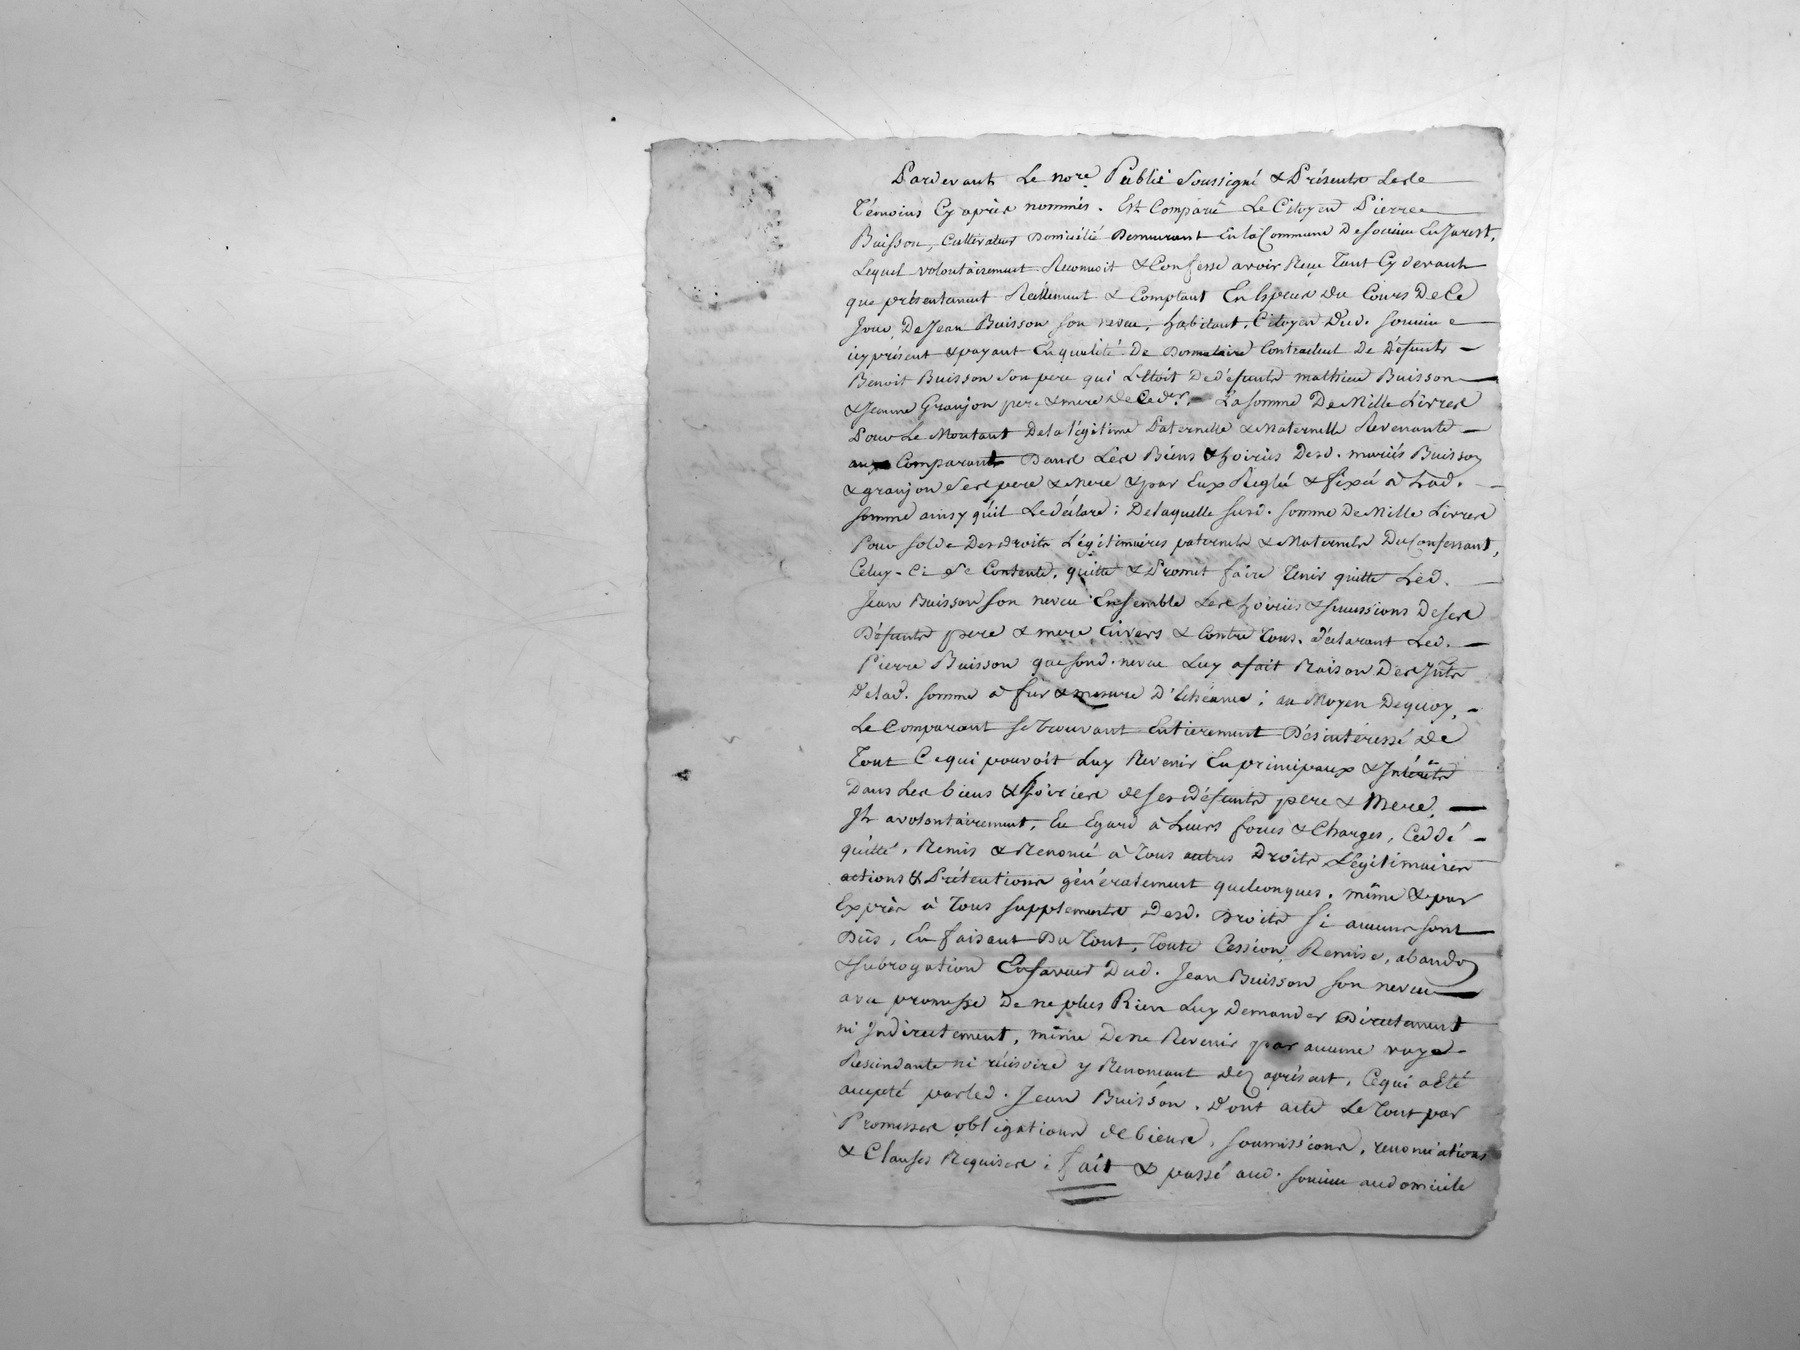 Pardevant Le nore Public Soussigné & Présents Les
Témoins Cy après nommés. Est Comparû Le Citoyen Pierre
Buisson, Cultivateur Domicilié Demeurant En la Commune De Soucieu En Jarest,
Lequel volontairement Reconnoit & Confesse avoir Reçu Tant Cy devant
que présentement Réellement & Comptant En Espèces Du Cours De Ce
Jour, De Jean Buisson Son neveu, habitant, Citoyen Dud. Soucieu
icy présent & payant En qualité De Donnataire Contractuel De Défunt
Benoit Buisson Son pere qui L'Etoit De défunts mathieu Buisson
& Jeanne Granjon pere & mere De Ced.er. La somme De Mille Livres
Pour Le Montant De la légitime Paternelle & Maternelle Revenante
au Comparant Dans Les Biens & hoiries Desd. mariés Buisson
& granjon Ses pere & Mere & par Eux Réglée & fixée à Lad.
somme ainsy qu'il Le déclare; De laquelle susd. somme De Mille Livres
Pour solde Des droits Légitimaires paternels & Maternels Du Confessant,
Celuy-Ci Se Contente, quitte & Promet faire Tenir quitte Led.
Jean Buisson son neveu Ensemble Les hoiries & successions De ses
Défunts pere & mere Envers & Contre Tous. déclarant Led.
Pierre Buisson que sond. neveu Luy a fait Raison Des Jnts
De lad. somme à fur & mesure D'Echéance; au Moyen De quoy,
Le Comparant se trouvant Entierement Désintéressé De
Tout Ce qui pouvoit Luy Revenir En principaux & Jntérêts
Dans Les biens & hoiries de ses défunts pere & Mere,
Jl a volontairement, Eu Egard à Leurs forces & Charges, Ceddé
quitté, Remis & Renoncé à Tous autres Droits Légitimaires
actions & Prétentions généralement quelconques, même & par
Exprès à Tous supplements Desd. Droits si aucuns sont
Dûs, En faisant Du Tout, Toute Cession, Remise, abandon
& subrogation En faveur Dud. Jean Buisson son neveu
avec promesse De ne plus Rien Luy Demander Directement
ni Jndirectement, même De ne Revenir par aucune voye
Rescindante ni réscisoire y Renoncant Dez àprésent, Ce qui a Eté
accepté par led. Jean Buisson. Dont acte Le Tout par
Promesses obligations de biens, soumissions, renonciations
& Clauses Requises; fait & passé aud. Soucieu au domicile